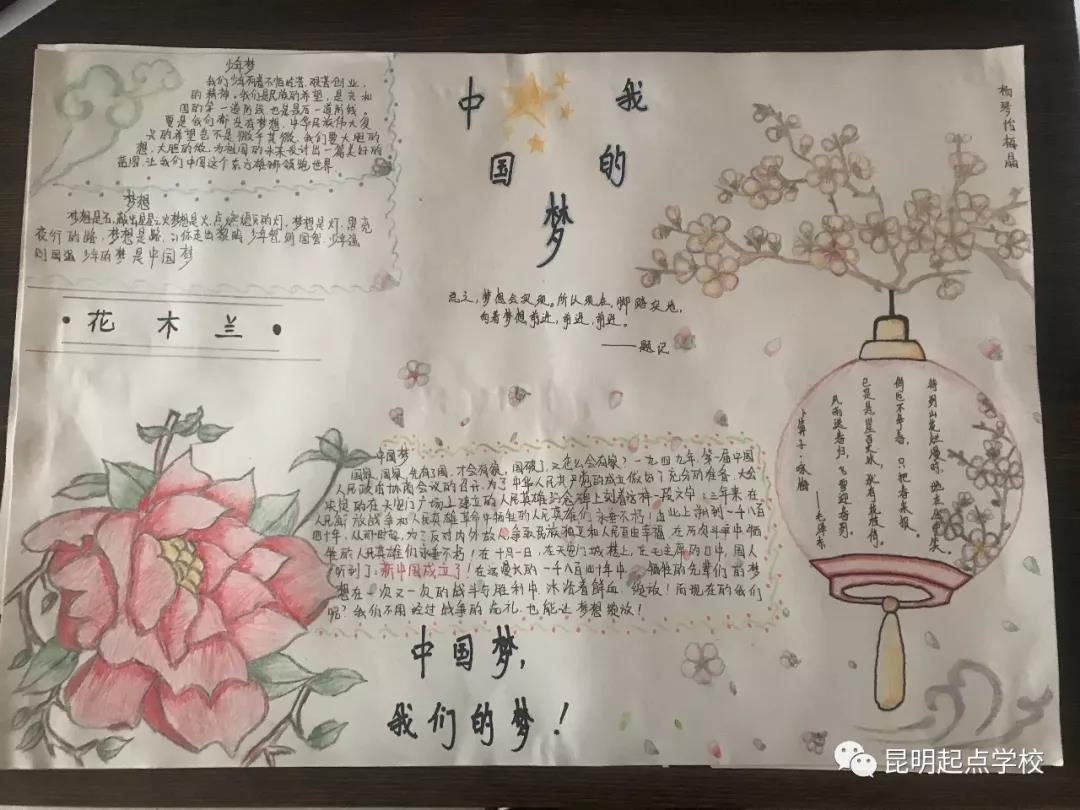 少年梦
我们少年有着不怕吃苦,艰苦创业,
的精神,我们是民族的希望,是共和
国的第一道防线,也是最后一道防线,
要是我们都没有梦想,中华民族伟大复
兴的希望岂不是微乎其微,我们要大胆的
想,大胆的做,为祖国的未来设计出一篇美好的
蓝图,让我们中国这个东方雄狮领跑世界.
梦想
梦想是石,敲出星星之火梦想是火,点燃熄灭的灯,梦想是灯,照亮
夜行的路,梦想是路,引你走出黎明,少年智则国智,少年强
则国强 少年的梦是中国梦
花木兰
我的
中国
梦
梦想会发现。所以现在,脚踏实地,
向着梦想前进,前进,前进。
——题记
杨琴
梅晶
待到山花烂漫时,她在丛中笑
俏也不争春,只把春来报。
已是悬崖百丈冰,犹有花枝俏。
风雨送春归,飞雪迎春到,
卜算子·咏梅
——毛泽东
中国梦
国家,国家,先有了国,才会有家,国破了,又怎么会有家?一九四九年,第一届中国
人民政治协商会议的召开,为了中华人民共和国的成立做好了充分的准备,大会
决定的在天安门广场上建立的人民英雄纪念碑上刻着这样一段文字:三年来在
人民解放战争和人民英雄革命中牺牲的人民英雄们永垂不朽!由此上溯到一千八百
四十年,从那时起,为了反对内外敌人,争取民族独立和人民自由幸福,在历次斗争中牺
牲的人民英雄们永垂不朽!在十月一日,在天安门城楼上,在毛主席的口中,国人
听到了:新中国成立了!在这漫长的一千八百四十年中,牺牲的先辈们的梦
想在一次又一次的战斗与胜利中,沐浴着鲜血,绽放!而现在的我们
呢?我们不用经过战争的洗礼,也能让梦想绽放!
中国梦,
我们的梦!
昆明起点学校